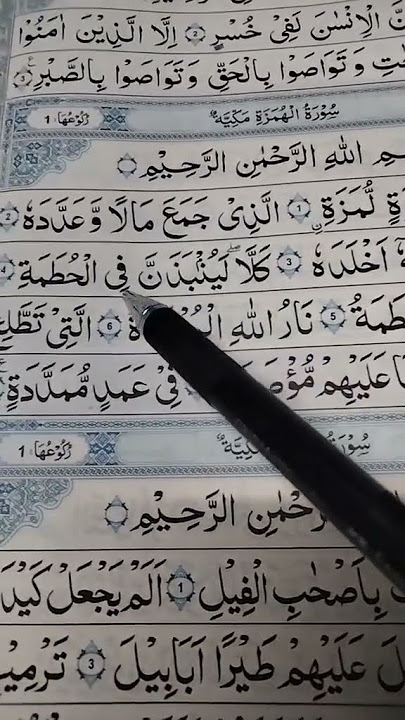 الْاِنْسٰنَ لَفِىْ خُسْرٍ ۙ‏ 2 اِلَّا الَّذِيْنَ اٰمَنُوْا
وَتَوَاصَوْا بِالْحَقِّ وَتَوَاصَوْا بِالصَّبْرِ 3
سُوْرَةُ الْهُمَزَةِ مَكِّيَّةٌ رُكُوْعُهَا 1
اللّٰهِ الرَّحْمٰنِ الرَّحِيْمِ
لُّمَزَةِ 1 الَّذِىْ جَمَعَ مَالًا وَّعَدَّدَهٗ 2
اَخْلَدَهٗ 3 كَلَّا لَيُنْۢبَذَنَّ فِى الْحُطَمَةِ 4
5 نَارُ اللّٰهِ 6 الَّتِىْ تَطَّلِعُ
عَلَيْهِمْ فِىْ عَمَدٍ مُّمَدَّدَةٍ
رُكُوْعُهَا 1
الرَّحِيْمِ
بِاَصْحٰبِ الْفِيْلِ 1 اَلَمْ يَجْعَلْ كَيْدَ
عَلَيْهِمْ طَيْرًا اَبَابِيْلَ 3